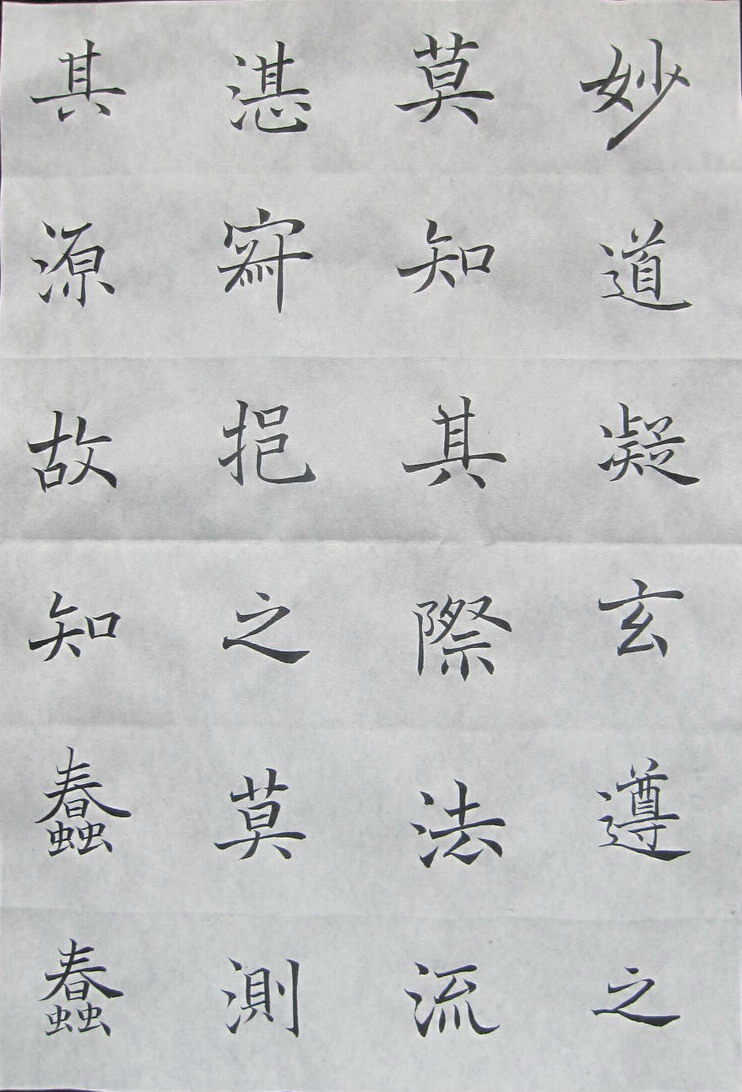 妙道凝玄遵之
莫知其際法流
湛寂挹之莫測
其源故知蠢蠢